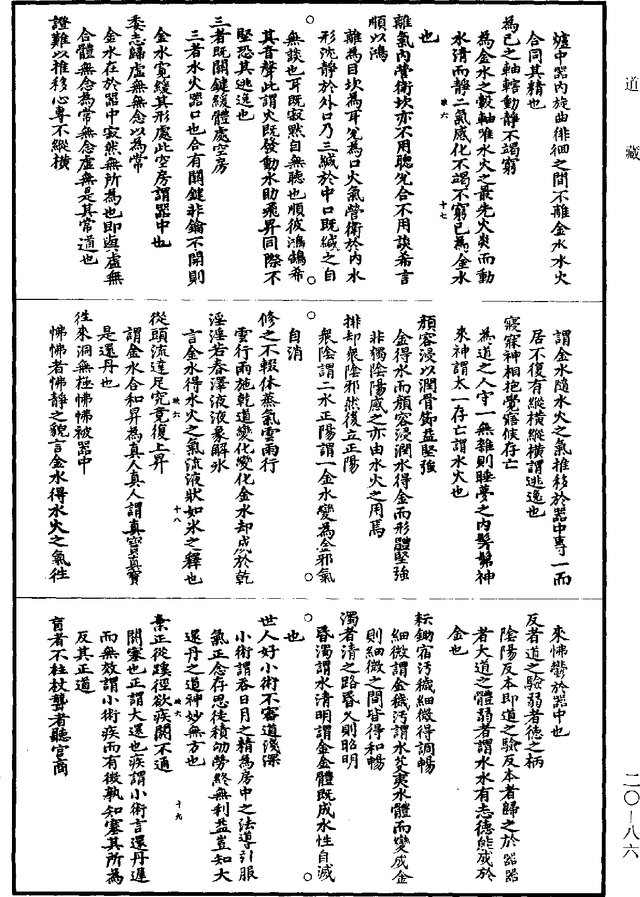 道藏
爐中器內旋曲徘徊之間不離金水水火
合同其精也
為己之軸轄動靜不竭窮
為金水之轂軸唯水火之最先火炎而動
水清而靜二氣感化不竭不窮已為金水
也
離氣內營衛坎亦不用聰兌合不用談希言
順以鴻
離為目坎為耳兌為口火氣營衛於內水
形沈靜於外口乃三緘於中口既緘之自
無談也耳既寂然自無聽也順彼鴻鵠希
其音聲此謂火既發動水助飛昇同際不
堅恐其逃逸也
三者既關鍵緩體處空房
三者水火器口也合有關鍵非鑰不開則
金水寬緩其形處此空房謂器中也
委志歸虛無無念以為常
金水在於器中寂然無所為也即與虛無
合體無念為常無念虛無是其常道也
證難以推移心專不縱橫
謂金水隨水火之氣推移於器中專一而
居不復有縱橫縱橫謂逃逸也
寢寐神相抱覺寤候存亡
為道之人守一無雜則睡夢之內髣髴神
來神謂太一存亡謂水火也
顏容浸以潤骨節益堅強
金得水而顏容浸潤水得金而形體堅強
非獨陰陽感之亦由水火之用焉
排却衆陰邪然後立正陽
衆陰謂二水正陽謂一金水變為金邪氣
自消
修之不輟休蒸氣雲雨行
雲行雨施乾道變化變化金水却成於乾
淫淫若春澤液液象解氷
言金水得水火之氣流液狀如氷之釋也
從頭流達足究竟復上昇
謂金水合和昇為真人真人謂真寶真寶
是還丹也
往來洞無極怫怫被器中
怫怫者怫靜之貌言金水得水火之氣往
來怫鬱於器中也
反者道之驗弱者德之柄
陰陽反本即道之驗反本者歸之於器器
者大道之體弱者謂水水有志德能成於
金也
耘鋤宿汚穢細微得調暢
細微謂金穢汚謂水芟夷水體而變成金
則細微之間皆得和暢
濁者清之路昏久則昭明
昏濁謂水清明謂金金體既成水性自滅
也
世人好小術不審道淺深
小術謂吞日月之精為房中之法導引服
氣正念存思徒積劬勞終無利益豈知大
還丹之道神妙無方也
棄正從蹊徑欲疾閼不通
閼塞也正謂大還也疾謂小術言還丹遲
而無效謂小術疾而有徵孰知塞其所為
反其正道
盲者不柱杖聾者聽宮商
映六 十七
映六 十八
映六 十九
二〇—八六